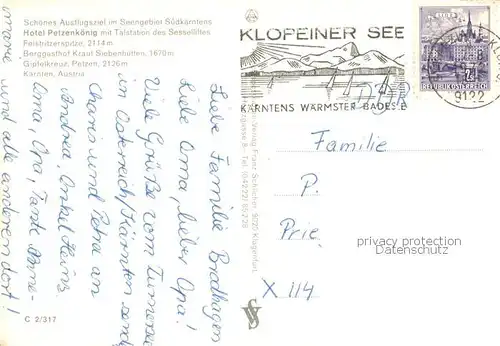 Schönes Ausflugsziel im Seengebiet Südkärntens
Hotel Petzenkönig mit Talstation des Sesselliftes
Feistritzerspitze, 2114 m
Berggasthof Kraut Siebenhütten, 1670 m
Gipfelkreuz, Petzen, 2126 m
Kärnten, Austria
Liebe Familie Bradhagen
Liebe Oma, lieber Opa!
Viele Grüße vom Turnersee
in Österreich/Kärnten senden
Charis und Petra an
Andrea, Onkel Heinz
Oma, Opa, Tante Anne-
und alle anderen dort!
C 2/317
Verlag Franz Schilcher, 9020 Klagenfurt,
KLOPEINER SEE
KÄRNTENS WÄRMSTER BADESEE
REPUBLIK ÖSTERREICH
9122
DDR
Familie
P.
Prie
X 114
privacy protection
Datenschutz